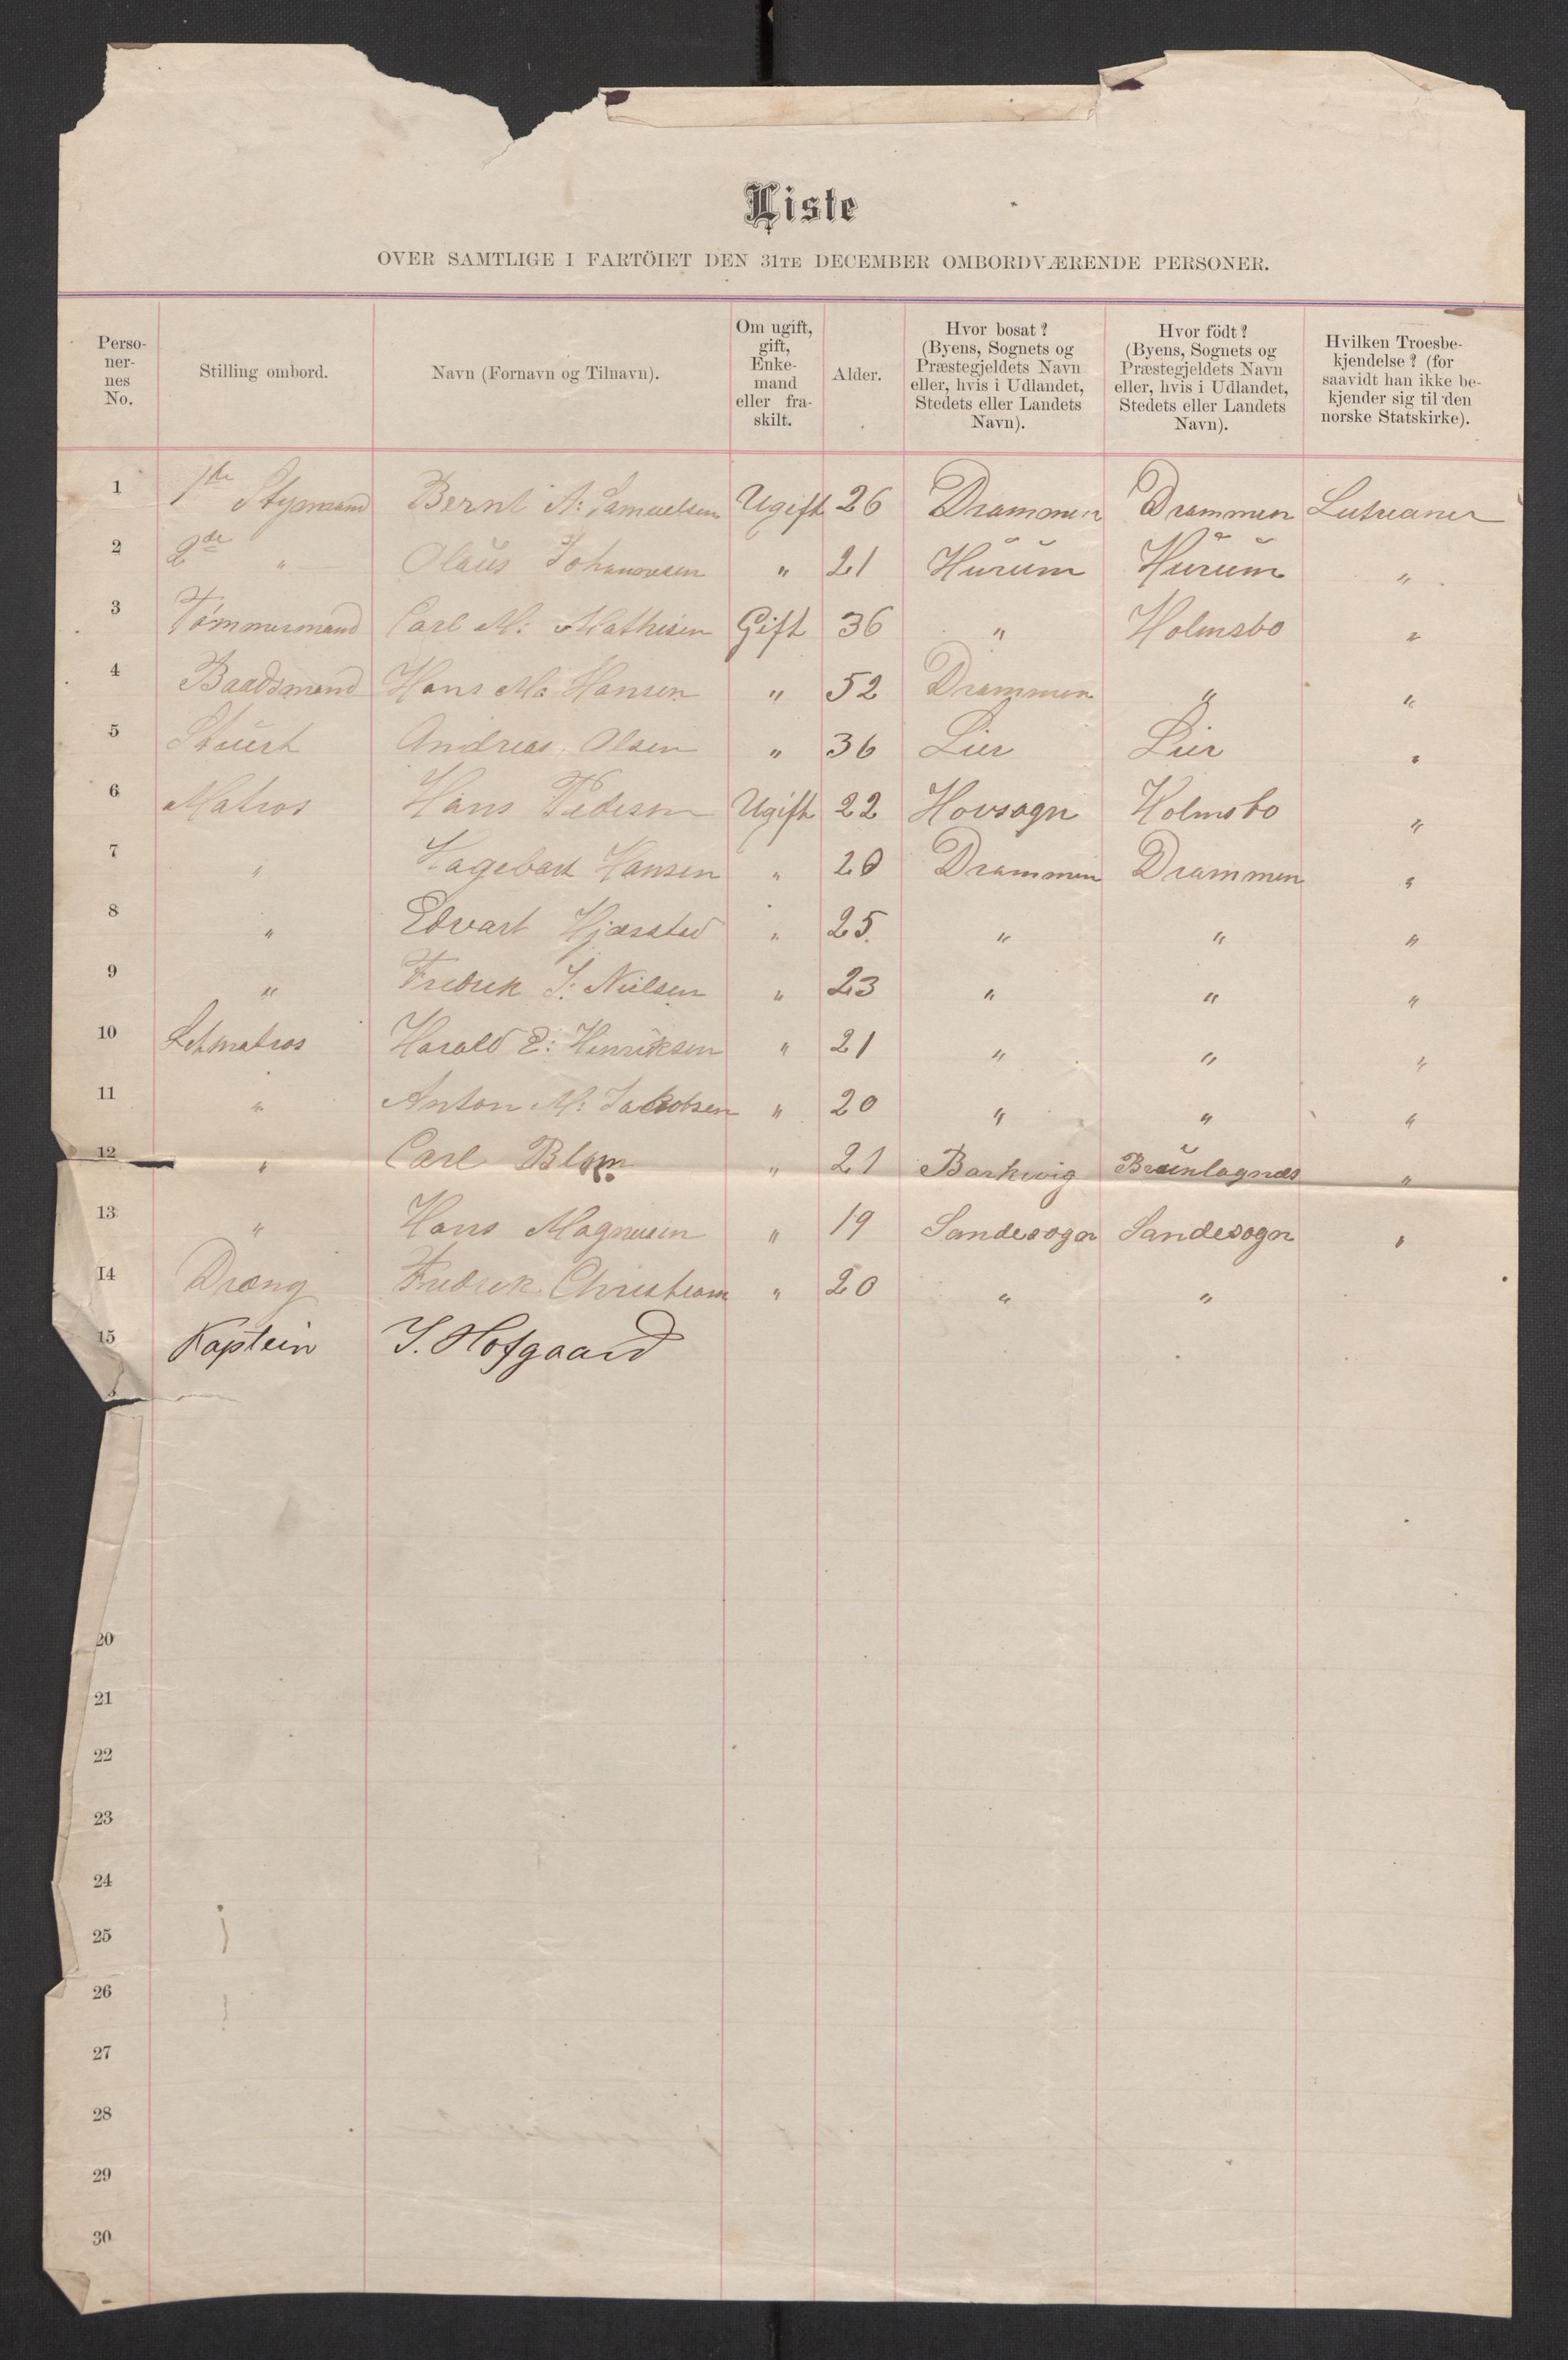 Liste
OVER SAMTLIGE I FARTÖIET DEN 31TE DECEMBER OMBORDVÆRENDE PERSONER.
Perso-
ner-
nes
No.
Stilling ombord.
Navn (Fornavn og Tilnavn).
Om ugift,
gift,
Enke-
mand
eller fra-
skilt.
Alder.
Hvor bosat?
(Byens, Sognets og
Præstegjeldets Navn
eller, hvis i Udlandet,
Stedets eller Landets
Navn).
Hvor födt?
(Byens, Sognets og
Præstegjeldets Navn
eller, hvis i Udlandet,
Stedets eller Landets
Navn).
Hvilken Troesbe-
kjendelse? (for
saavidt han ikke be-
kjender sig til den
norske Statskirke).
1 1ste Stypmand Bernt A: Samuelsen Ugift 26 Drammen Drammen Lutreaner
2 2de " Olaus Johannesen " 21 Hurum Hurum "
3 Tömmermand Carl M: Mathisen Gift 36 " Holmsbo "
4 Baadsmand Hans M: Hansen " 52 Drammen " "
5 Stuert Andreas Olsen " 36 Lier Lier "
6 Matros Hans Pedersen Ugift 22 Hovsogn Holmsbo "
7 " Hagebart Hansen " 20 Drammen Drammen "
8 " Edvart " 25 " " "
9 " Fredrik J: Nielsen " 23 " " "
10 Letmatros Harald E: Henriksen " 21 " " "
11 " Anton M: Jakobsen " 20 " " "
12 " Carl Blom " 21 Barkvig Brunlagnæs "
13 " Hans Magnusen " 19 Sandesogn Sandesogn "
14 Dræng Fredrik " 20 " "
15 Kaptein J. Hofgaard
20
21
22
23
24
25
26
27
28
29
30